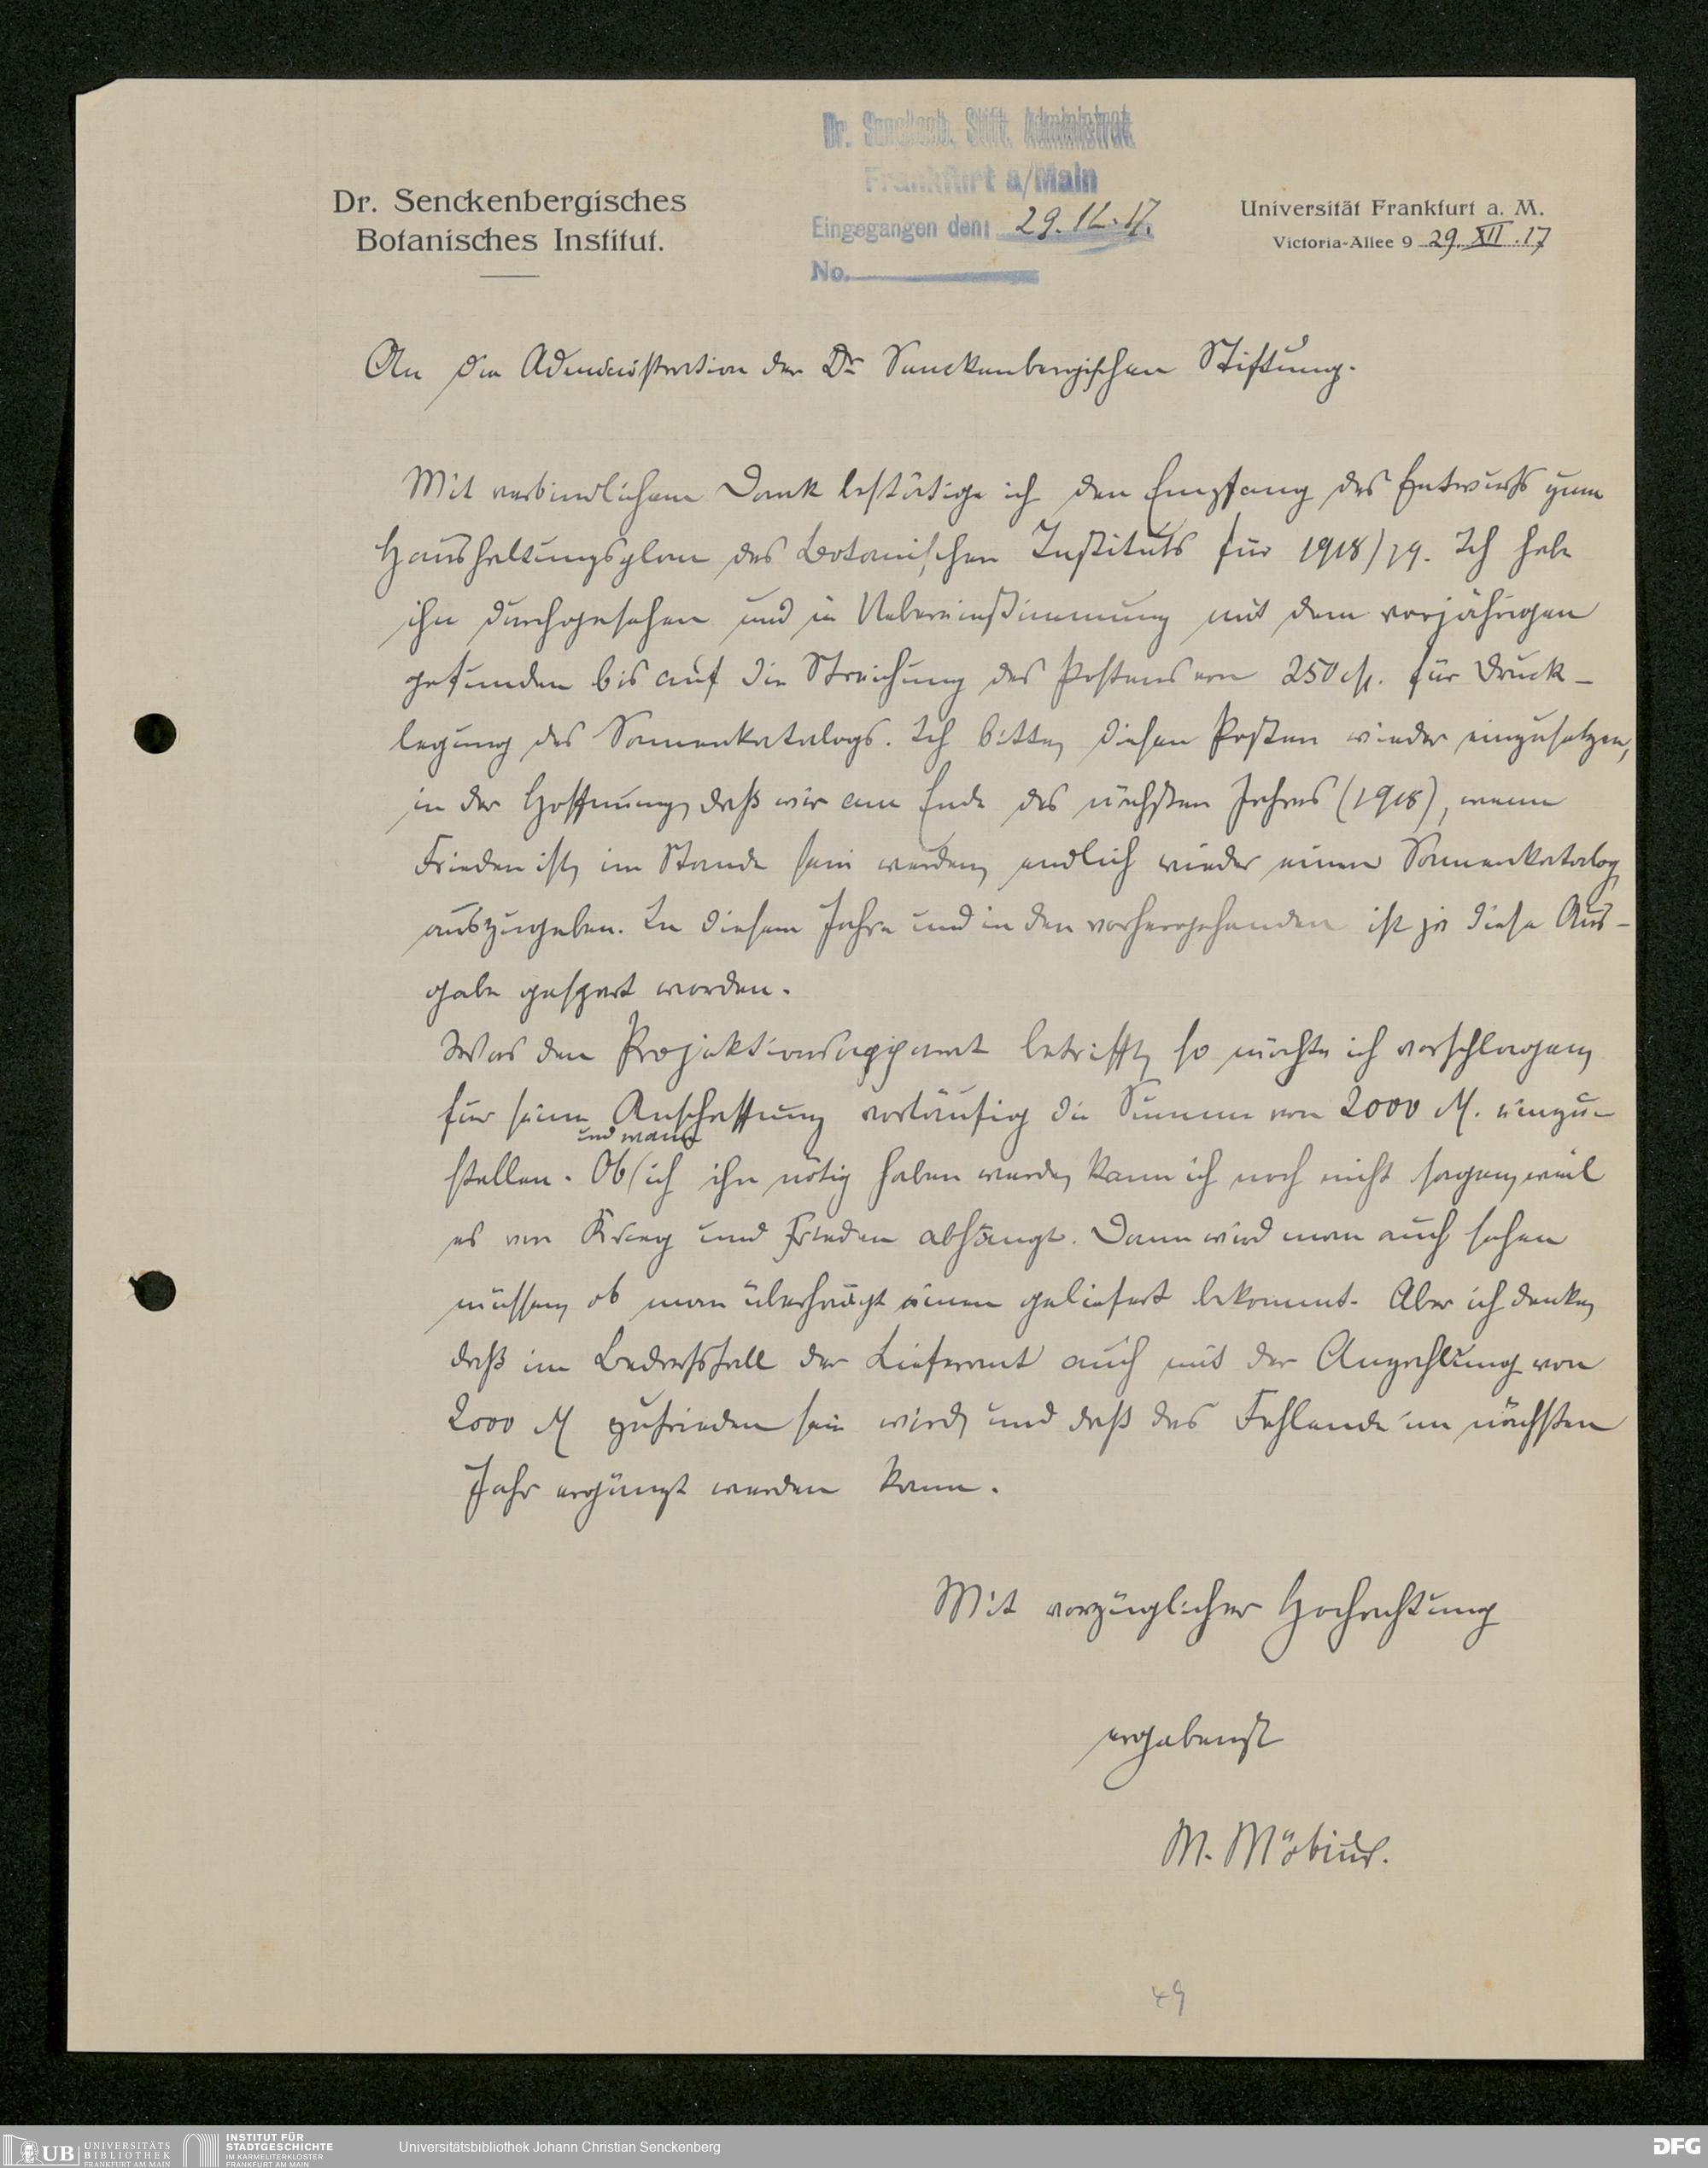 Dr. Senckenb. Stift. Administrat.
Frankfurt a/Main
Eingegangen den: 29.12.17.
No.
Dr. Senckenbergisches
Botanisches Institut.
Universität Frankfurt a. M.
Victoria-Allee 9 29. XII. 17
An die Administration der Dr. Senckenbergischen Stiftung.
Mit verbindlichem Dank bestätige ich den Empfang des Entwurfs zum
Haushaltungsplan des Botanischen Instituts für 1918/19. Ich habe
ihn durchgesehen und in Uebereinstimmung mit dem vorjährigen
gefunden bis auf die Streichung des Postens von 250 M. für Druck-
legung des Samenkatalogs. Ich bitte, diesen Posten wieder einzusetzen,
in der Hoffnung, daß wir am Ende des nächsten Jahres (1918), wenn
Frieden ist, im Stande sein werden, endlich wieder einen Samenkatalog
auszugeben. In diesem Jahre und in den vorhergehenden ist ja diese Aus-
gabe gespart worden.
Was den Projektionsapparat betrifft, so möchte ich vorschlagen,
für seine Anschaffung vorläufig die Summe von 2000 M. einzu-
und wann
stellen. Ob ich ihn nötig haben werde, kann ich noch nicht sagen, weil
es von Krieg und Frieden abhängt. Dann wird man auch sehen
müssen, ob man überhaupt einen geliefert bekommt. Aber ich denke,
daß im Bedarfsfall der Lieferant auch mit der Anzahlung von
2000 M zufrieden sein wird, und daß das Fehlende im nächsten
Jahr ergänzt werden kann.
Mit vorzüglicher Hochachtung
ergebenst
M. Möbius.
49
UB UNIVERSITÄTS
BIBLIOTHEK
FRANKFURT AM MAIN
INSTITUT FÜR
STADTGESCHICHTE
IM KARMELITERKLOSTER
FRANKFURT AM MAIN
Universitätsbibliothek Johann Christian Senckenberg
DFG